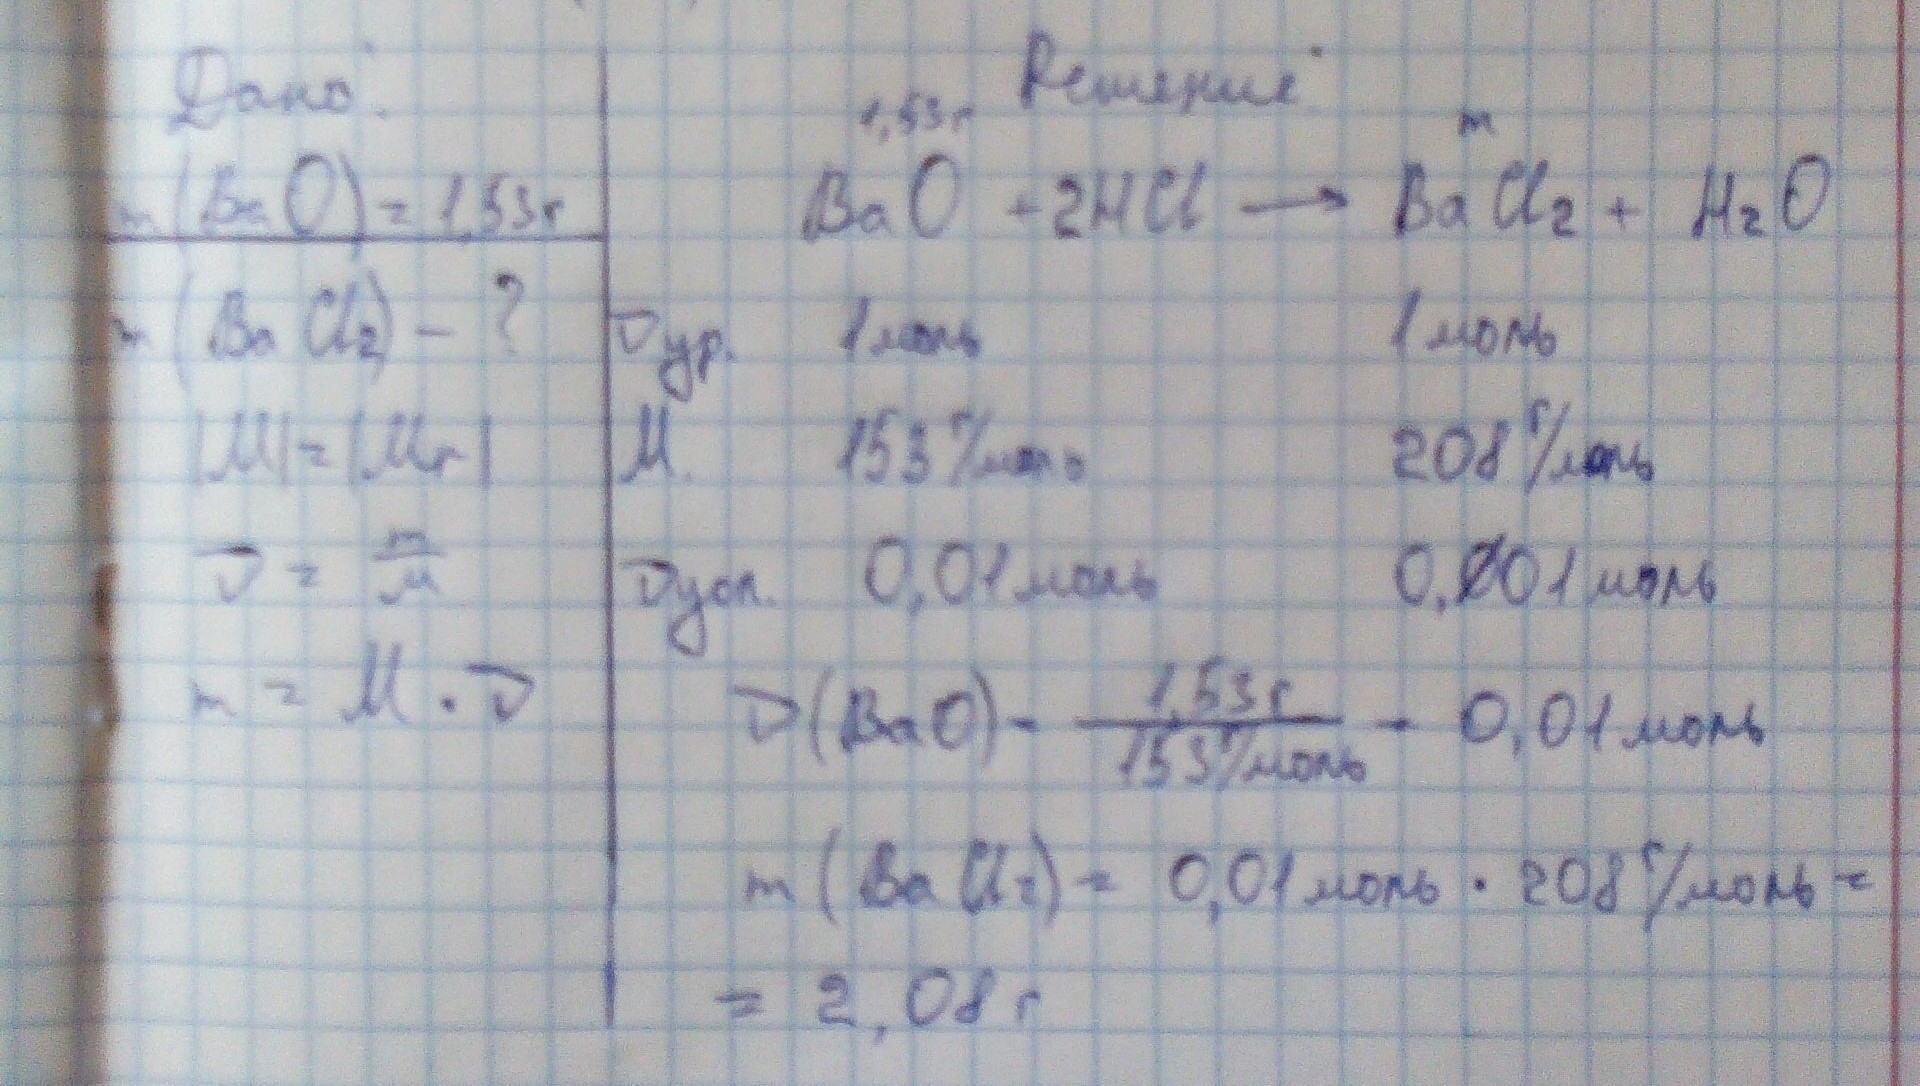 Дано:
m(BaO) = 1,53г
m(BaCl₂) – ?
|M| = |Mr|
ν = m/M
m = M · ν
Решение:
1,53г m
BaO + 2HCl → BaCl₂ + H₂O
νур. 1моль 1моль
M. 153г/моль 208г/моль
νусл. 0,01моль 0,01моль
ν(BaO) = 1,53г / 153г/моль = 0,01моль
m(BaCl₂) = 0,01моль · 208г/моль =
= 2,08г